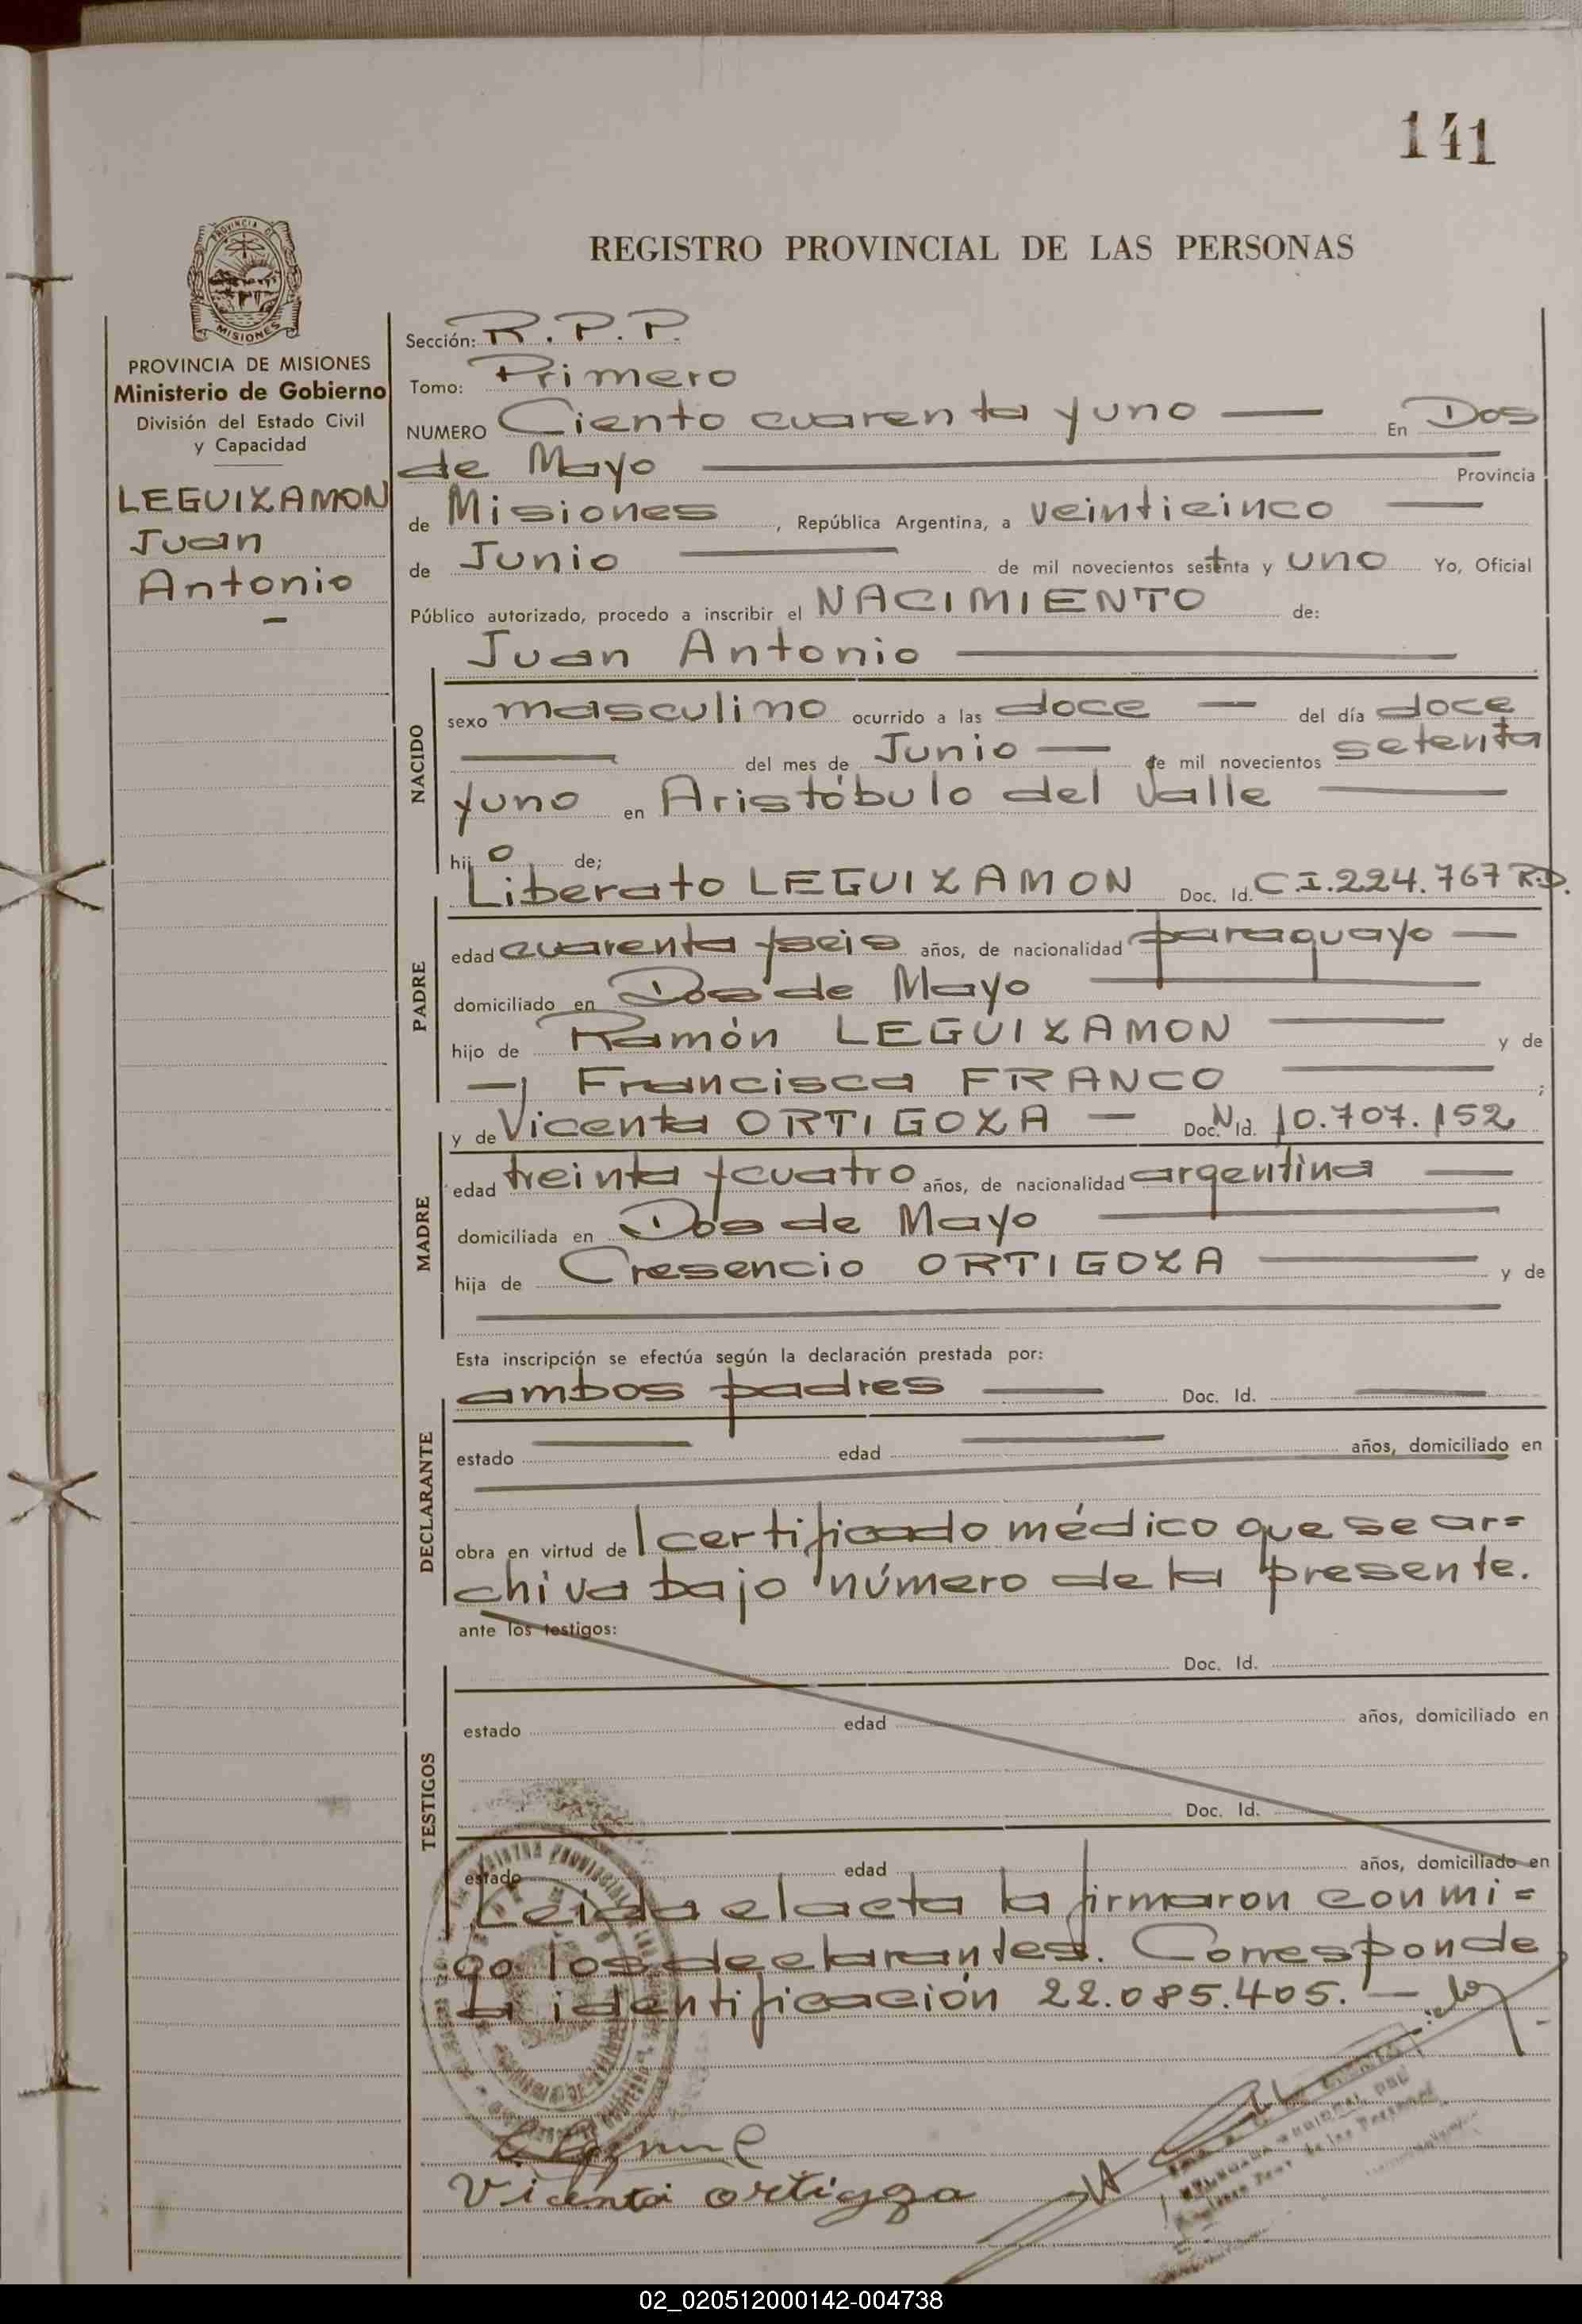 141
REGISTRO PROVINCIAL DE LAS PERSONAS
PROVINCIA DE
MISIONES
PROVINCIA DE MISIONES
Ministerio de Gobierno
División del Estado Civil
y Capacidad
LEGUIZAMON
Juan
Antonio
Sección: R.P.P.
Tomo: Primero
NUMERO Ciento cuarenta y uno — En Dos
de Mayo — Provincia
de Misiones, República Argentina, a veinticinco —
de Junio — de mil novecientos setenta y uno Yo, Oficial
Público autorizado, procedo a inscribir el NACIMIENTO de:
Juan Antonio —
NACIDO
sexo masculino ocurrido a las doce — del día doce
— del mes de Junio — de mil novecientos setenta
y uno en Aristóbulo del Valle —
hijo de;
PADRE
Liberato LEGUIZAMON Doc. Id. C.I.224.767 R.D.
edad cuarenta y seis años, de nacionalidad paraguayo —
domiciliado en Dos de Mayo —
hijo de Ramón LEGUIZAMON — y de
— Francisca FRANCO — ;
MADRE
y de Vicenta ORTIGOZA — Doc. N. Id. 10.707.152
edad treinta y cuatro años, de nacionalidad argentina —
domiciliada en Dos de Mayo —
hija de Cresencio ORTIGOZA — y de
—
Esta inscripción se efectúa según la declaración prestada por:
DECLARANTE
ambos padres — Doc. Id. —
estado — edad — años, domiciliado en
—
obra en virtud de l certificado médico que se ar=
chiva bajo número de la presente.
ante los testigos:
TESTIGOS
Doc. Id.
estado edad años, domiciliado en
Doc. Id.
estado edad años, domiciliado en
Leida el acta la firmaron conmi=
go los declarantes. Corresponde
la identificación 22.085.405. —
Vicenta ortigoza
02_020512000142-004738